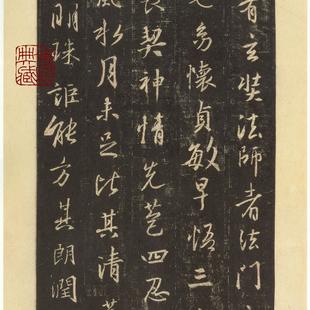 有玄奘法師者法門
幼懷貞敏早悟三
長契神情先苞四忍
風水月未足比其清
明珠詎能方其朗潤